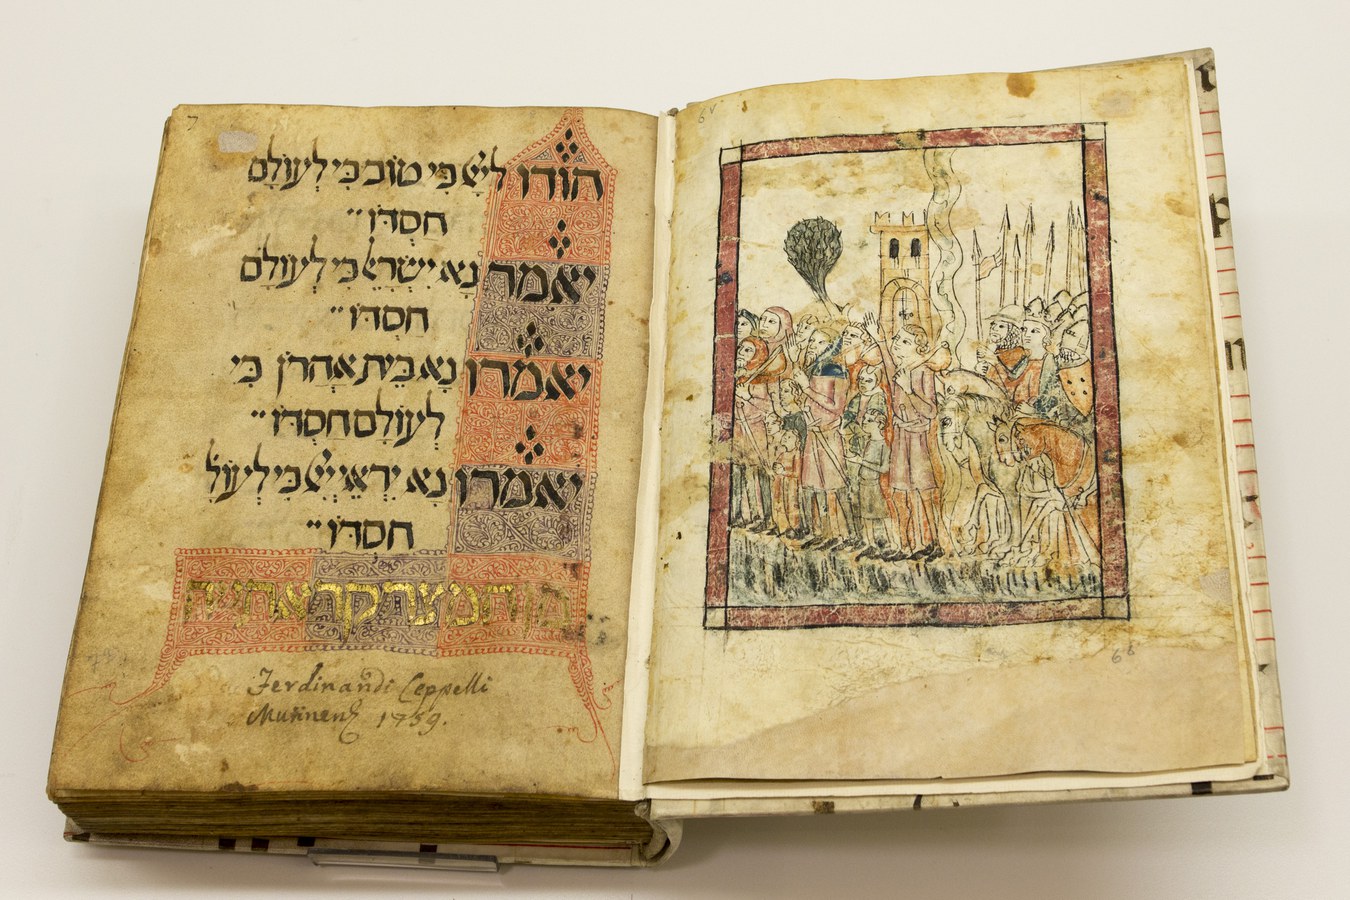 7
6v
הודו ליי כי טוב כי לעולם
חסדו״
יאמר נא ישראל כי לעולם
חסדו״
יאמרו נא בית אהרן כי
לעולם חסדו״
יאמרו נא יראי יי כי לעול
חסדו״
מן המצר קראתי יה
Ferdinandi Ceppelli
1759.
6b